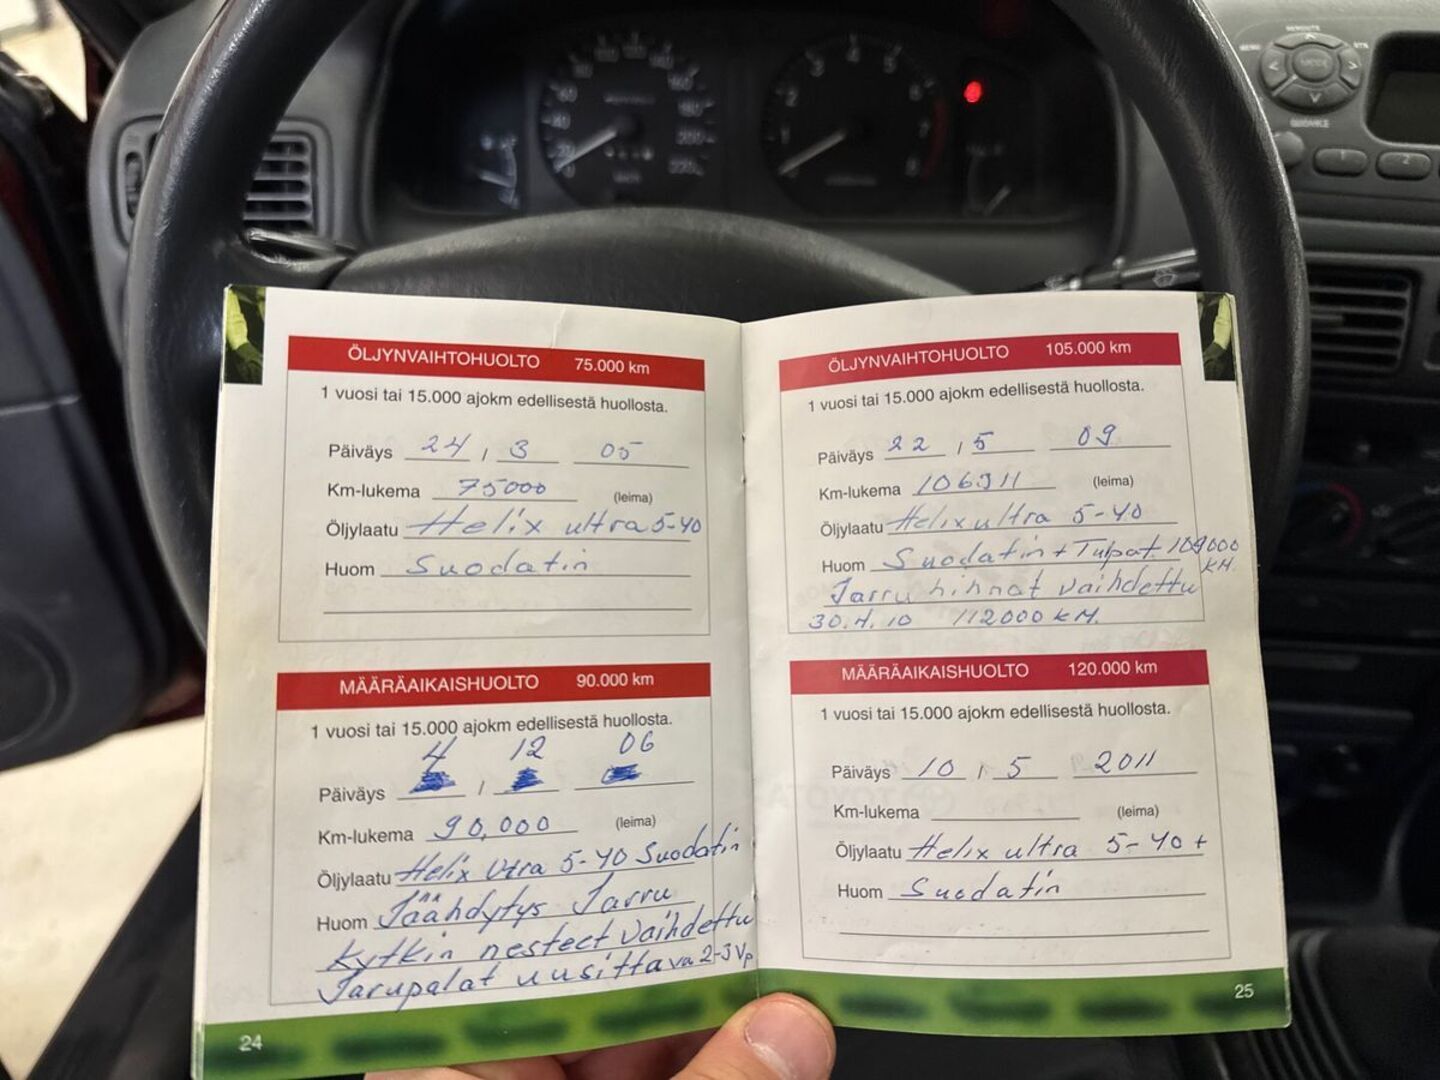 ÖLJYNVAIHTOHUOLTO 75.000 km
1 vuosi tai 15.000 ajokm edellisestä huollosta.
Päiväys 24 / 3 05
Km-lukema 75000 (leima)
Öljylaatu Helix ultra 5-40
Huom Suodatin
MÄÄRÄAIKAISHUOLTO 90.000 km
1 vuosi tai 15.000 ajokm edellisestä huollosta.
4 12 06
Päiväys /
Km-lukema 90,000 (leima)
Öljylaatu Helix Utra 5-40 Suodatin
Huom Jäähdytys Jarru
kytkin nesteet vaihdettu
Jarupalat uusittava 2-3 Vp
24
ÖLJYNVAIHTOHUOLTO 105.000 km
1 vuosi tai 15.000 ajokm edellisestä huollosta.
Päiväys 22 / 5 09
Km-lukema 106911 (leima)
Öljylaatu Helix ultra 5-40
Huom Suodatin + Tulpat 109000
KM.
Jarru hihnat vaihdettu
30.4.10 112000 KM.
MÄÄRÄAIKAISHUOLTO 120.000 km
1 vuosi tai 15.000 ajokm edellisestä huollosta.
Päiväys 10 / 5 2011
Km-lukema (leima)
Öljylaatu Helix ultra 5-40 +
Huom Suodatin
25
MODE
GUIDANCE
1 2